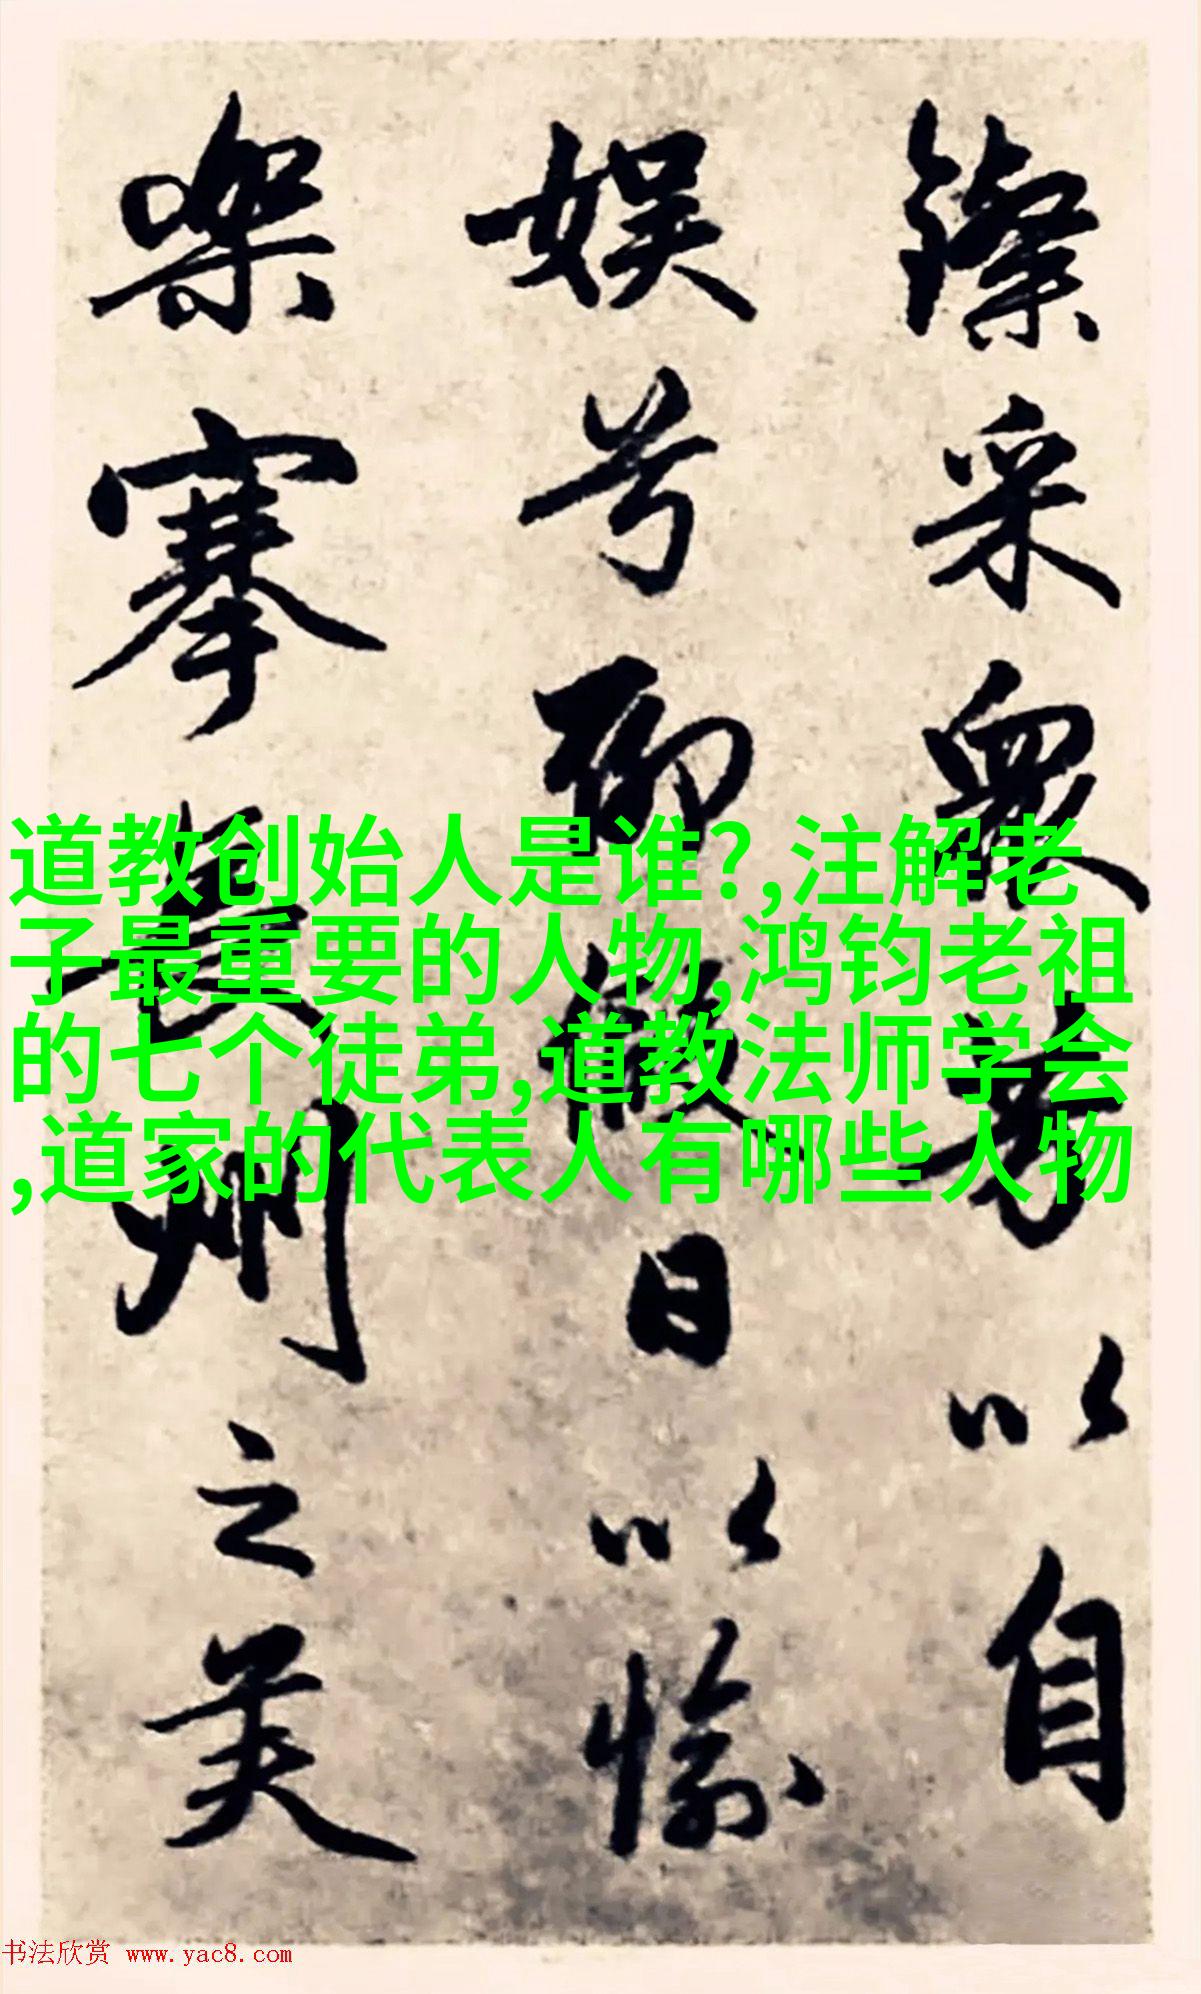 采眾芳以自
娛兮聊日以愉
樂搴長洲之美
道教创始人是谁?,注解老
子最重要的人物,鸿钧老祖
的七个徒弟,道教法师学会
,道家的代表人有哪些人物
书法欣赏 www.yac8.com